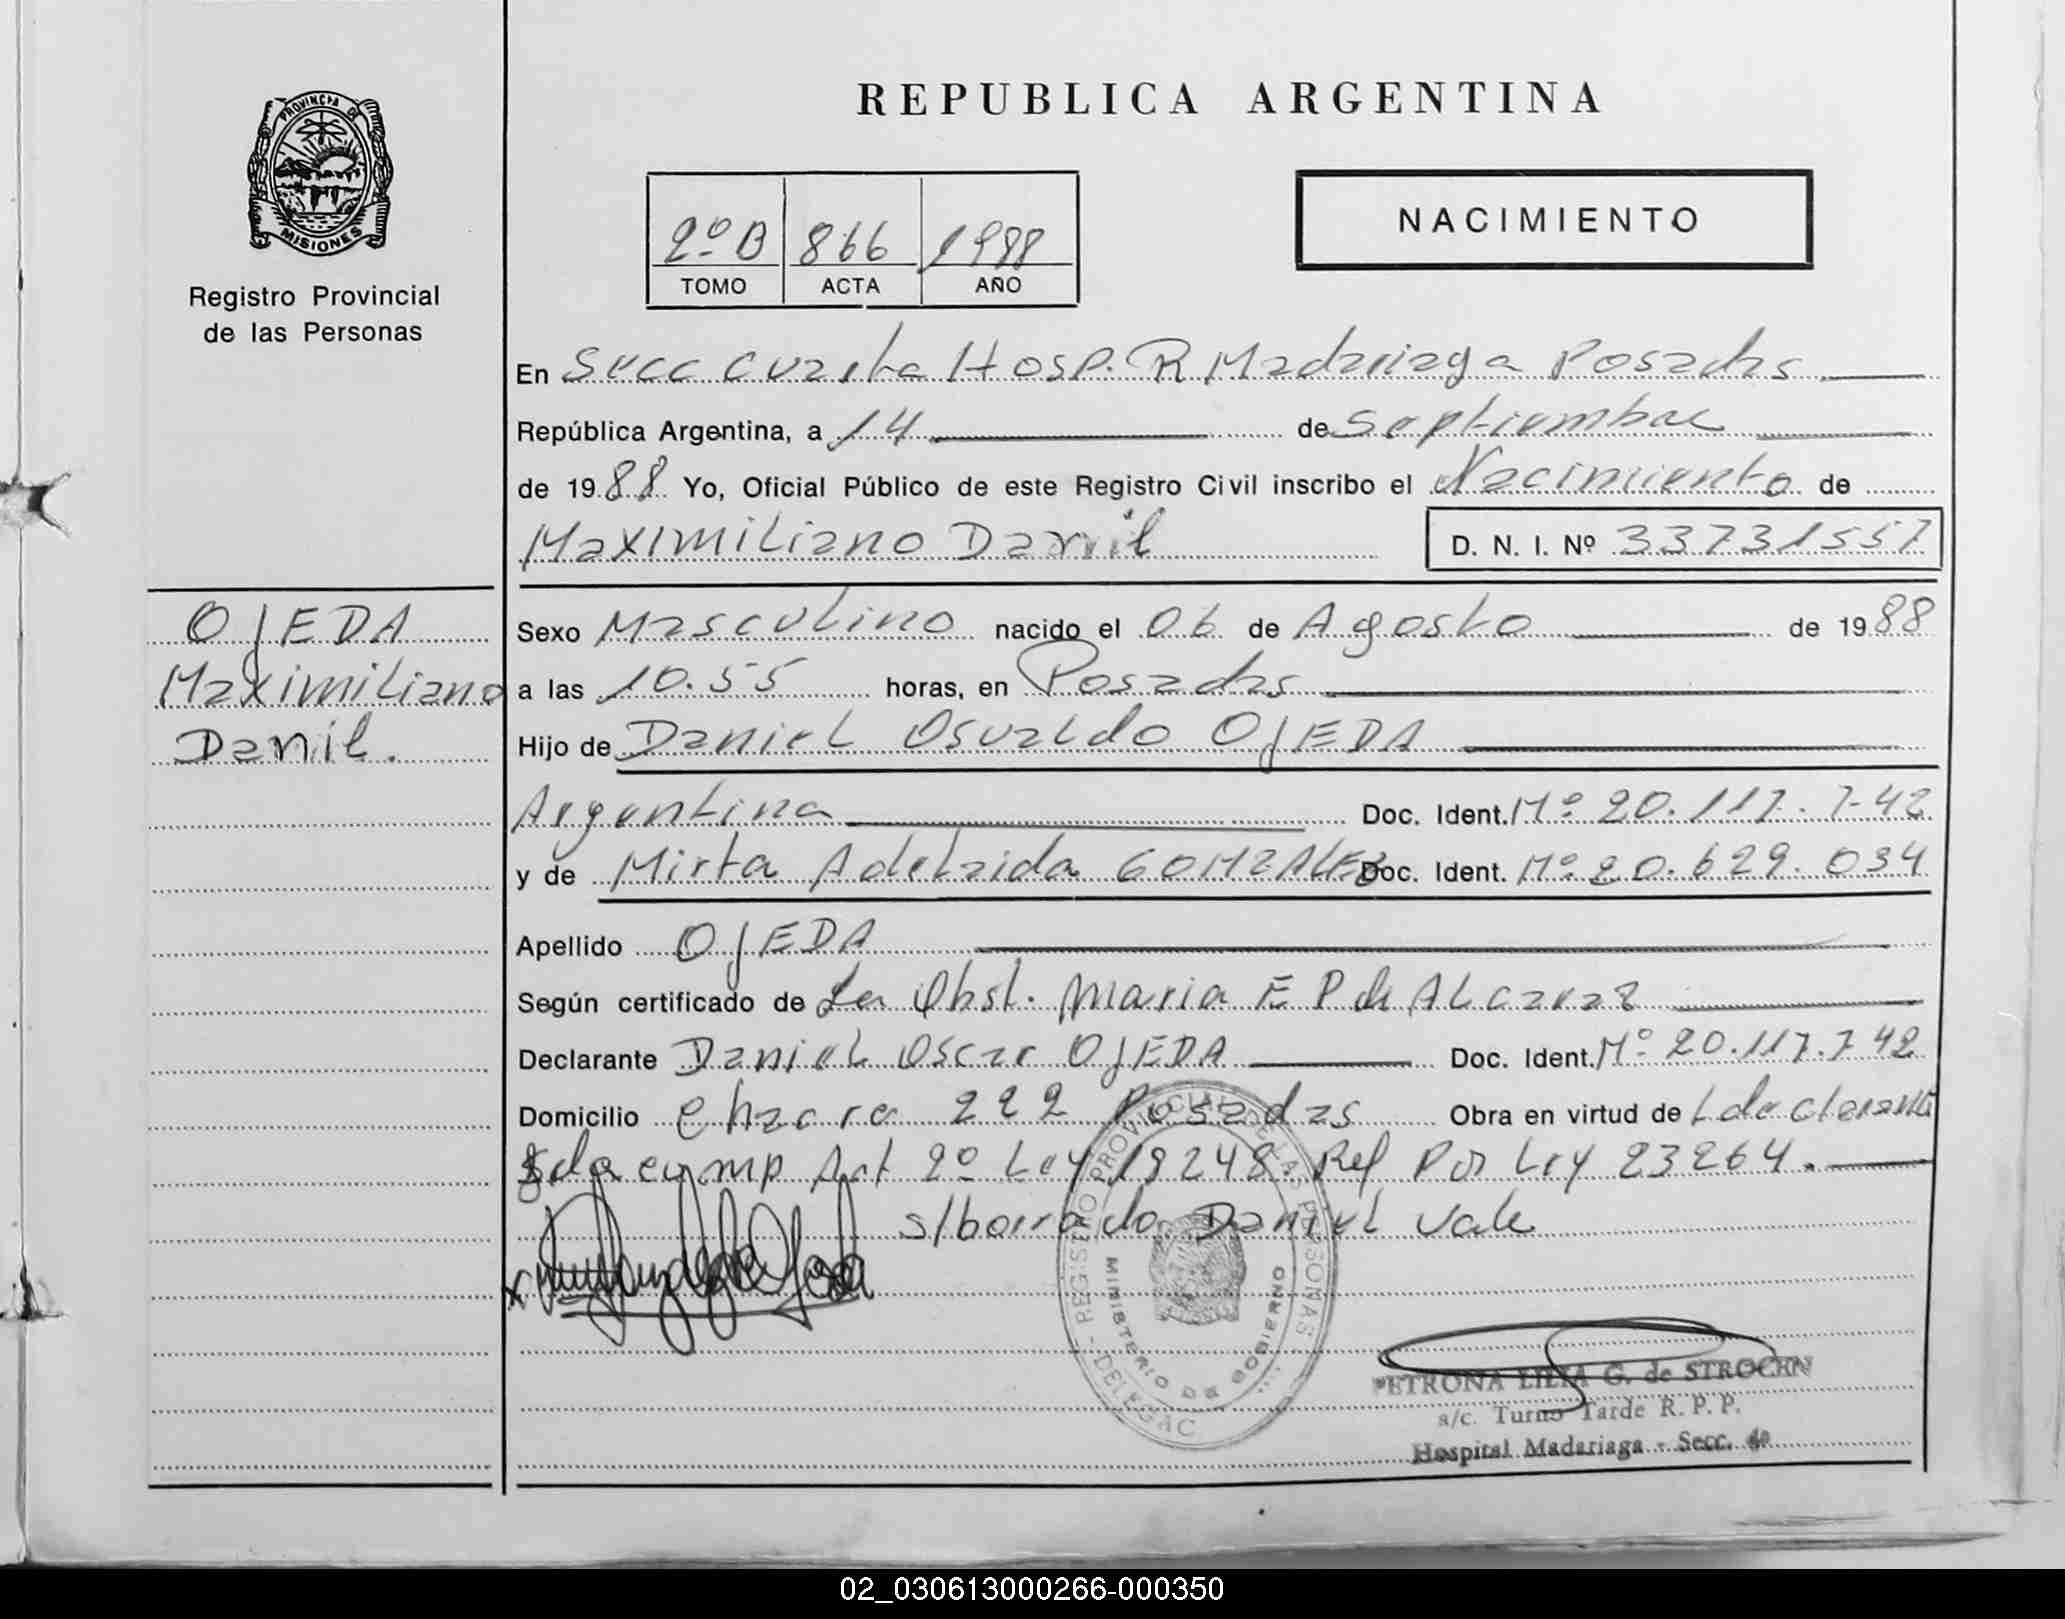 REPUBLICA ARGENTINA
PROVINCIA DE
MISIONES
Registro Provincial
de las Personas
2º B 866 1988
TOMO ACTA AÑO
NACIMIENTO
En Secc cuarta Hosp. R Madariaga Posadas
República Argentina, a 14 de Septiembre
de 1988 Yo, Oficial Público de este Registro Civil inscribo el Nacimiento de
Maximiliano Daniel
D. N. I. Nº 33731557
OJEDA
Maximiliano
Daniel.
Sexo Masculino nacido el 06 de Agosto de 1988
a las 10.55 horas, en Posadas
Hijo de Daniel Osvaldo OJEDA
Argentina Doc. Ident. Mº 20.117.742
y de Mirta Adelaida GONZALEZ Doc. Ident. Mº 20.629.034
Apellido OJEDA
Según certificado de La Obst. Maria E P de Alcaraz
Declarante Daniel Oscar OJEDA Doc. Ident. Mº 20.117.742
Domicilio Chacra 222 Posadas Obra en virtud de
comp Art 2º Ley 18248 Ref Por Ley 23264.
s/borrado Daniel vale
REGISTRO PROVINCIAL DE LAS PERSONAS - DELEGAC
MINISTERIO DE GOBIERNO
PETRONA LILIA G. de STROCEN
a/c. Turno Tarde R. P. P.
Hospital Madariaga - Secc. 4a
02_030613000266-000350